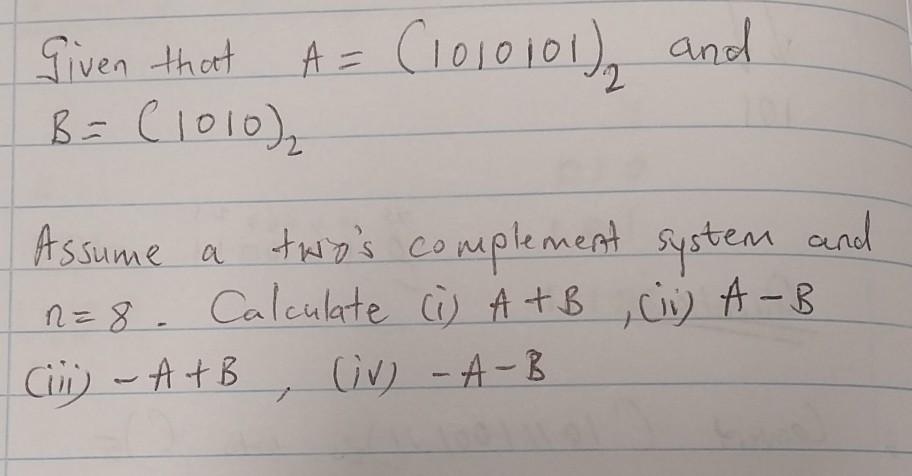 Given that A = (1010101)₂ and
B = (1010)₂
Assume a two's complement system and
n = 8. Calculate (i) A + B, (ii) A - B
(iii) - A + B, (iv) - A - B